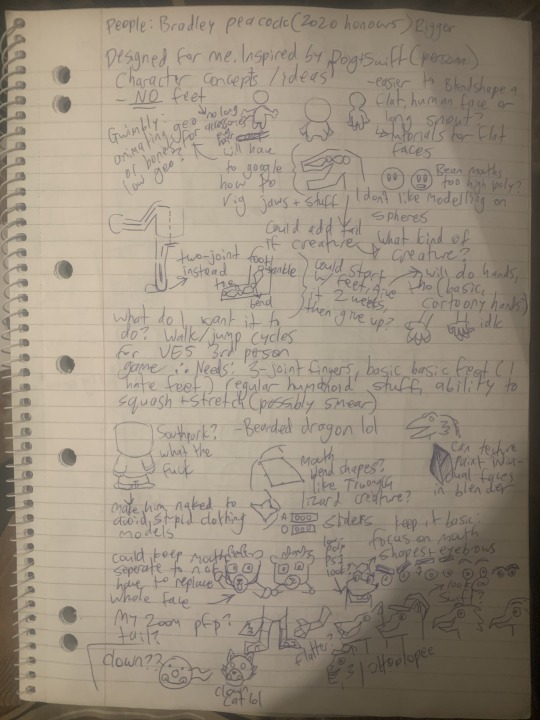 People: Bradley peacock (2020 honours) Rigger
Designed for me. Inspired by Dog+Swift (person)
Character concepts / ideas
- NO feet
- easier to blendshape a
flat, human face or
long snout?
tutorials for flat
faces
no long
accessories
e.g.
hair
Gwimbly:
animating geo
or bones?
low geo?
will have
to google
how to
rig jaws + stuff
Bean mouths
too high poly?
I don't like modelling on
spheres
could add tail
if creature
What kind of
creature?
two-joint foot
instead
toe
ankle
bend
could start
feet, give
it 2 weeks,
then give up?
will do hands,
(basic,
cartoony hands)
idk
What do I want it to
do? Walk/jump cycles
For VES 3rd person
game ∴ Needs: 3-joint fingers, basic basic feet (I
hate feet) regular humanoid stuff, ability to
squash + stretch (possibly smear)
Southpark?
what the
fuck
- Bearded dragon lol
Mouth
blend shapes?
like Triangle
lizard creature?
Can texture
paint indivi-
dual faces
in blender
make him naked to
avoid stupid clothing
models
A
O
sliders
keep it basic,
focus on mouth
shapes + eyebrows
could keep mouth
seperate to not
have to replace
whole face
low
poly
ps1
look?
My Zoom pfp?
tail?
flatter?
clown??
clown
cat lol